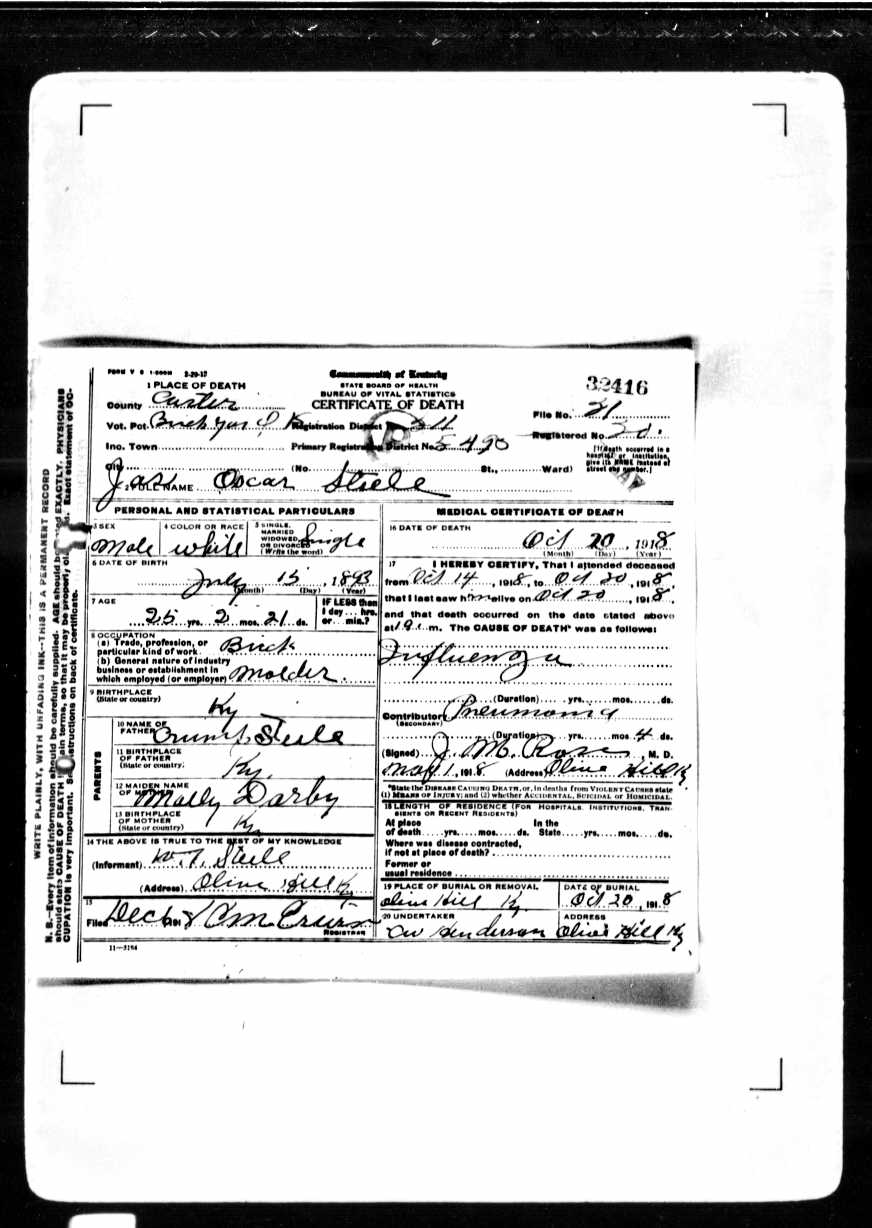 FORM V S 1-500M 2-20-17
Commonwealth of Kentucky
STATE BOARD OF HEALTH
BUREAU OF VITAL STATISTICS
CERTIFICATE OF DEATH
32416
1 PLACE OF DEATH
County Carter
File No. 21
Vot. Pct. Registration District No. 511
Registered No. 20
Inc. Town Primary Registration District No. 5490
[If death occurred in a hospital or institution, give its NAME instead of street and number.]
City (No. St., Ward)
2 FULL NAME Jas Oscar Steele
PERSONAL AND STATISTICAL PARTICULARS
3 SEX Male
4 COLOR OR RACE white
5 SINGLE, MARRIED WIDOWED OR DIVORCED (Write the word) Single
6 DATE OF BIRTH
July 15, 1893
(Month) (Day) (Year)
7 AGE
25 yrs. 2 mos. 21 ds.
IF LESS than 1 day... hrs. or... min.?
8 OCCUPATION
(a) Trade, profession, or particular kind of work Brick
(b) General nature of industry business or establishment in which employed (or employer) Molder
9 BIRTHPLACE
(State or country) Ky
PARENTS
10 NAME OF FATHER Steele
11 BIRTHPLACE OF FATHER (State or country) Ky.
12 MAIDEN NAME OF MOTHER Molly Darby
13 BIRTHPLACE OF MOTHER (State or country) Ky
14 THE ABOVE IS TRUE TO THE BEST OF MY KNOWLEDGE
(Informant) W. T. Steele
(Address) Olive Hill Ky
15
Filed Dec 191 8
REGISTRAR
11-3184
MEDICAL CERTIFICATE OF DEATH
16 DATE OF DEATH
Oct 20, 1918
(Month) (Day) (Year)
17 I HEREBY CERTIFY, That I attended deceased
from Oct 14, 1918, to Oct 20, 1918,
that I last saw him alive on Oct 20, 1918,
and that death occurred on the date stated above
at m. The CAUSE OF DEATH* was as follows:
Influenza
(Duration) yrs. mos. ds.
Contributory Pneumonia
(SECONDARY)
(Duration) yrs. mos. 4 ds.
(Signed) J. M. Rose, M. D.
1, 1918 (Address) Olive Hill Ky
*State the DISEASE CAUSING DEATH, or, in deaths from VIOLENT CAUSES state
(1) MEANS OF INJURY; and (2) whether ACCIDENTAL, SUICIDAL or HOMICIDAL.
18 LENGTH OF RESIDENCE (FOR HOSPITALS, INSTITUTIONS, TRANSIENTS OR RECENT RESIDENTS)
At place of death yrs. mos. ds. In the State yrs. mos. ds.
Where was disease contracted,
if not at place of death?
Former or
usual residence
19 PLACE OF BURIAL OR REMOVAL
Olive Hill Ky
DATE OF BURIAL
Oct 20, 1918
20 UNDERTAKER
Henderson
ADDRESS
Olive Hill Ky
WRITE PLAINLY, WITH UNFADING INK—THIS IS A PERMANENT RECORD
N. B.—Every item of information should be carefully supplied. AGE should be EXACTLY. PHYSICIANS
should state CAUSE OF DEATH in plain terms, so that it may be properly Exact statement of OC-
CUPATION is very important. See instructions on back of certificate.